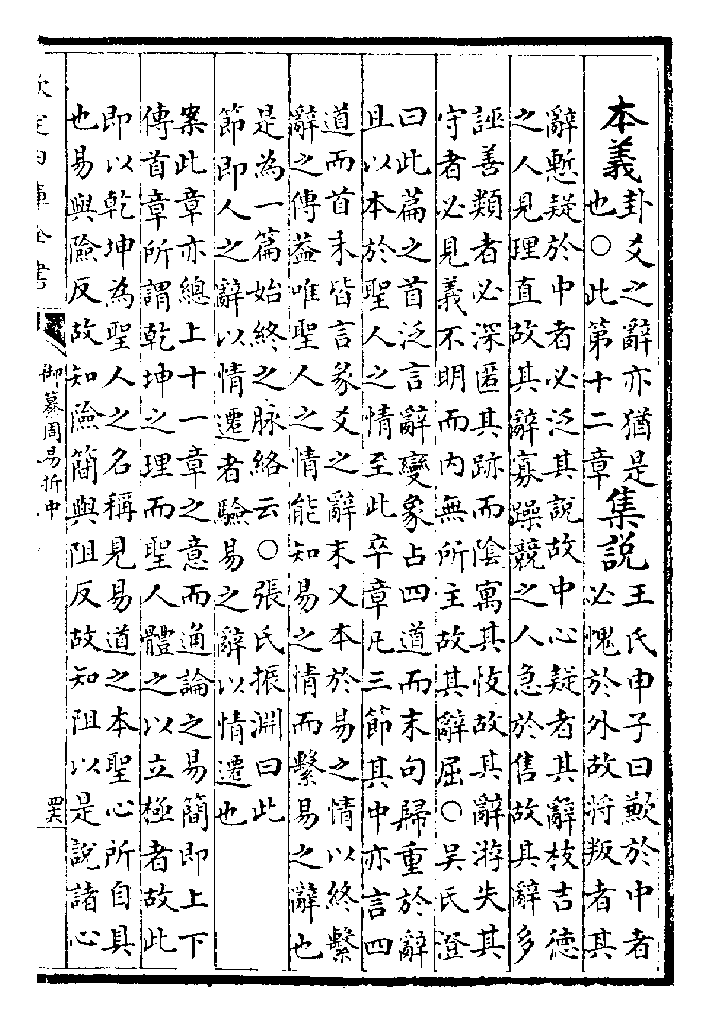 本義卦爻之辭亦猶是
也○此第十二章
集説王氏申子曰歉於中者
必愧於外故將叛者其
辭慙疑於中者必泛其說故中心疑者其辭枝吉德
之人見理直故其辭寡躁競之人急於售故其辭多
誣善類者必深匿其跡而陰寓其忮故其辭游失其
守者必見義不明而内無所主故其辭屈○吳氏澄
曰此篇之首泛言辭變象占四道而末句歸重於辭
且以本於聖人之情至此卒章凡三節其中亦言四
道而首末皆言彖爻之辭末又本於易之情以終繫
辭之傳葢唯聖人之情能知易之情而繫易之辭也
是為一篇始終之脉絡云○張氏振淵曰此
節即人之辭以情遷者驗易之辭以情遷也
案此章亦總上十一章之意而通論之易簡即上下
傳首章所謂乾坤之理而聖人體之以立極者故此
即以乾坤為聖人之名稱見易道之本聖心所自具
也易與險反故知險簡與阻反故知阻以是説諸心
欽定四庫全書
御纂周易折中